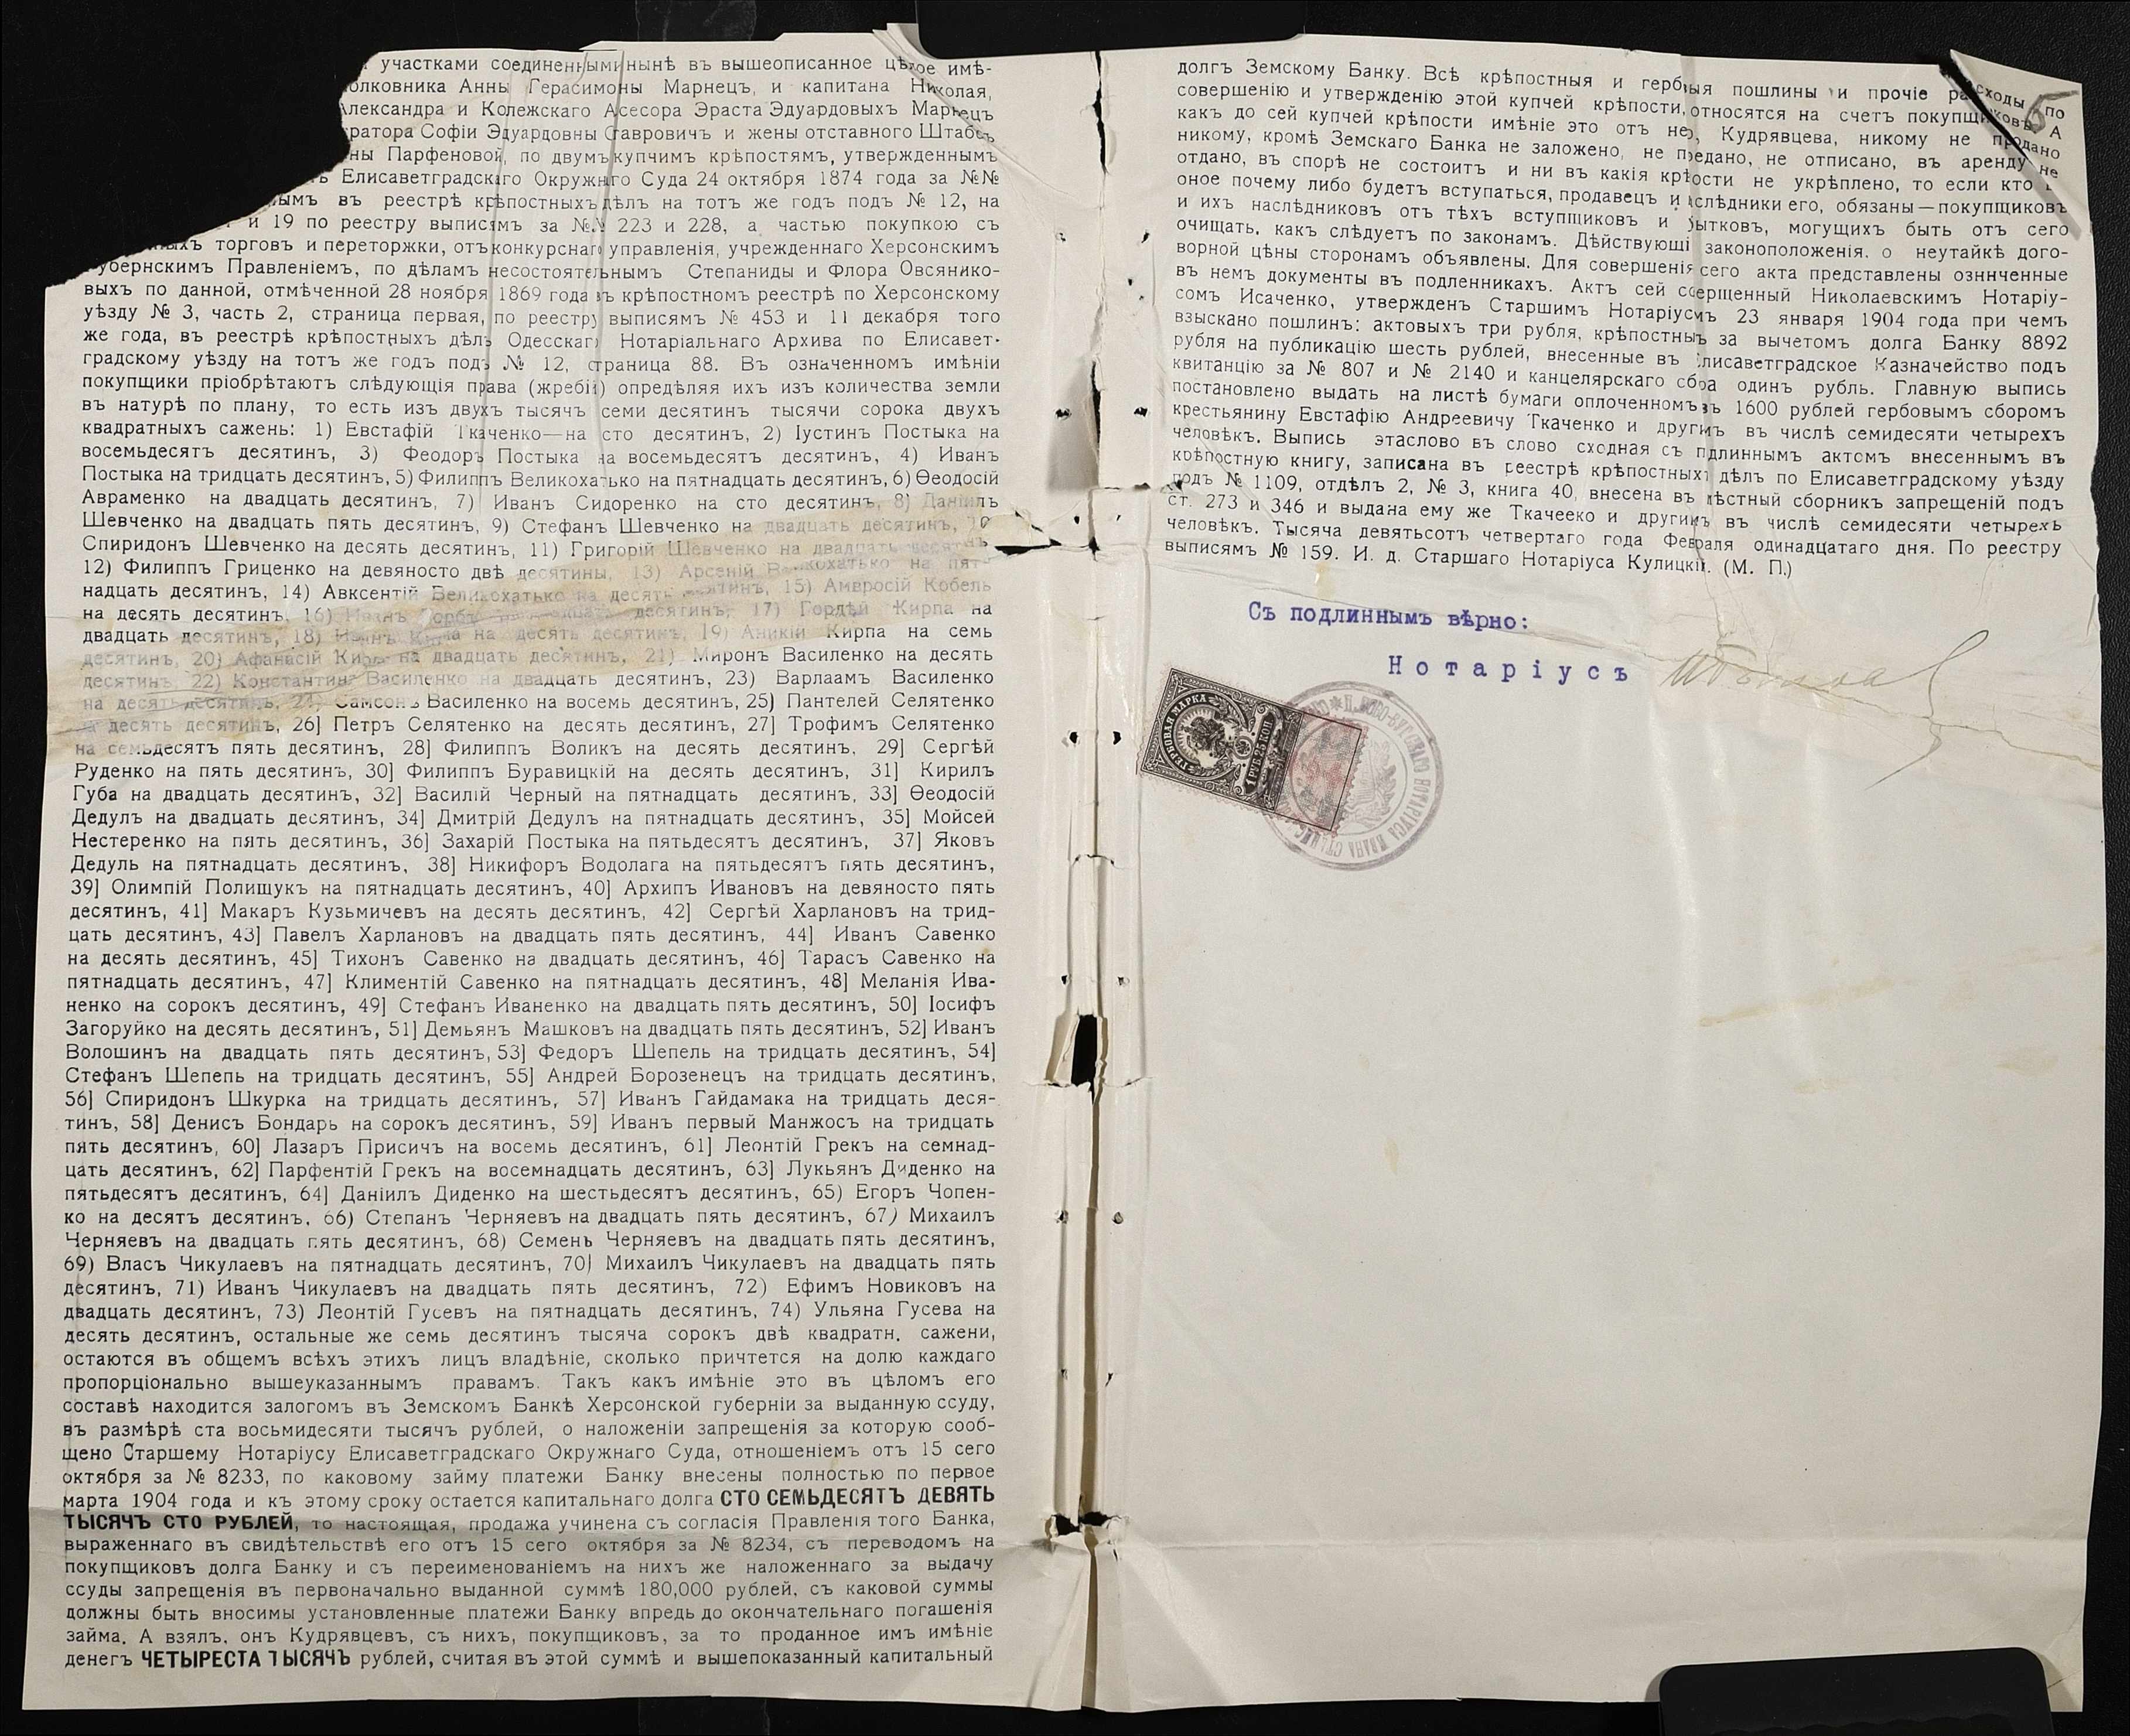 участками соединенными нынѣ въ вышеописанное цѣлое имѣ-
олковника Анны Герасимоны Марнецъ, и капитана Николая,
Александра и Колежскаго Асесора Эраста Эдуардовыхъ Марнецъ
ратора Софіи Эдуардовны Ставровичъ и жены отставного Штабсъ
ны Парфеновой, по двумъ купчимъ крѣпостямъ, утвержденнымъ
ъ Елисаветградскаго Окружнаго Суда 24 октября 1874 года за №№
ымъ въ реестрѣ крѣпостныхъ дѣлъ на тотъ же годъ подъ № 12, на
и 19 по реестру выписямъ за №№ 223 и 228, а частью покупкою съ
ныхъ торговъ и переторжки, отъ конкурснаго управленія, учрежденнаго Херсонскимъ
Губернскимъ Правленіемъ, по дѣламъ несостоятельнымъ Степаниды и Флора Овсянико-
выхъ по данной, отмѣченной 28 ноября 1869 года въ крѣпостномъ реестрѣ по Херсонскому
уѣзду № 3, часть 2, страница первая, по реестру выписямъ № 453 и 11 декабря того
же года, въ реестрѣ крѣпостныхъ дѣлъ Одесскаго Нотаріальнаго Архива по Елисавет-
градскому уѣзду на тотъ же годъ подъ № 12, страница 88. Въ означенномъ имѣніи
покупщики пріобрѣтаютъ слѣдующія права (жребіи) опредѣляя ихъ изъ количества земли
въ натурѣ по плану, то есть изъ двухъ тысячъ семи десятинъ тысячи сорока двухъ
квадратныхъ сажень: 1) Евстафій Ткаченко—на сто десятинъ, 2) Іустинъ Постыка на
восемьдесятъ десятинъ, 3) Феодоръ Постыка на восемьдесятъ десятинъ, 4) Иванъ
Постыка на тридцать десятинъ, 5) Филиппъ Великохатько на пятнадцать десятинъ, 6) Ѳеодосій
Авраменко на двадцать десятинъ, 7) Иванъ Сидоренко на сто десятинъ, 8) Даніилъ
Шевченко на двадцать пять десятинъ, 9) Стефанъ Шевченко на двадцать десятинъ, 10
Спиридонъ Шевченко на десять десятинъ, 11) Григорій Шевченко на двадцать десятинъ
12) Филиппъ Гриценко на девяносто двѣ десятины, 13) Арсеній Великохатько на пят-
надцать десятинъ, 14) Авксентій Великохатько на десять десятинъ, 15) Амвросій Кобель
на десять десятинъ, 16) Иванъ Горбъ десятинъ, 17) Гордѣй Кирпа на
двадцать десятинъ, 18) Иванъ Кирпа на десять десятинъ, 19) Аникій Кирпа на семь
десятинъ, 20) Афанасій Кирпа на двадцать десятинъ, 21) Миронъ Василенко на десять
десятинъ, 22) Константинъ Василенко на двадцать десятинъ, 23) Варлаамъ Василенко
на десять десятинъ, 24) Самсонъ Василенко на восемь десятинъ, 25) Пантелей Селятенко
на десять десятинъ, 26] Петръ Селятенко на десять десятинъ, 27] Трофимъ Селятенко
на семьдесятъ пять десятинъ, 28] Филиппъ Воликъ на десять десятинъ, 29] Сергѣй
Руденко на пять десятинъ, 30] Филиппъ Буравицкій на десять десятинъ, 31] Кирилъ
Губа на двадцать десятинъ, 32] Василій Черный на пятнадцать десятинъ, 33] Ѳеодосій
Дедулъ на двадцать десятинъ, 34] Дмитрій Дедулъ на пятнадцать десятинъ, 35] Мойсей
Нестеренко на пять десятинъ, 36] Захарій Постыка на пятьдесятъ десятинъ, 37] Яковъ
Дедуль на пятнадцать десятинъ, 38] Никифоръ Водолага на пятьдесятъ пять десятинъ,
39] Олимпій Полищукъ на пятнадцать десятинъ, 40] Архипъ Ивановъ на девяносто пять
десятинъ, 41] Макаръ Кузьмичевъ на десять десятинъ, 42] Сергѣй Харлановъ на трид-
цать десятинъ, 43] Павелъ Харлановъ на двадцать пять десятинъ, 44] Иванъ Савенко
на десять десятинъ, 45] Тихонъ Савенко на двадцать десятинъ, 46] Тарасъ Савенко на
пятнадцать десятинъ, 47] Климентій Савенко на пятнадцать десятинъ, 48] Меланія Ива-
ненко на сорокъ десятинъ, 49] Стефанъ Иваненко на двадцать пять десятинъ, 50] Іосифъ
Загоруйко на десять десятинъ, 51] Демьянъ Машковъ на двадцать пять десятинъ, 52] Иванъ
Волошинъ на двадцать пять десятинъ, 53] Федоръ Шепель на тридцать десятинъ, 54]
Стефанъ Шепепь на тридцать десятинъ, 55] Андрей Борозенецъ на тридцать десятинъ,
56] Спиридонъ Шкурка на тридцать десятинъ, 57] Иванъ Гайдамака на тридцать деся-
тинъ, 58] Денисъ Бондарь на сорокъ десятинъ, 59] Иванъ первый Манжосъ на тридцать
пять десятинъ, 60] Лазаръ Присичъ на восемь десятинъ, 61] Леонтій Грекъ на семнад-
цать десятинъ, 62] Парфентій Грекъ на восемнадцать десятинъ, 63] Лукьянъ Диденко на
пятьдесятъ десятинъ, 64] Даніилъ Диденко на шестьдесятъ десятинъ, 65) Егоръ Чопен-
ко на десять десятинъ, 66) Степанъ Черняевъ на двадцать пять десятинъ, 67) Михаилъ
Черняевъ на двадцать пять десятинъ, 68) Семенъ Черняевъ на двадцать пять десятинъ,
69) Власъ Чикулаевъ на пятнадцать десятинъ, 70) Михаилъ Чикулаевъ на двадцать пять
десятинъ, 71) Иванъ Чикулаевъ на двадцать пять десятинъ, 72) Ефимъ Новиковъ на
двадцать десятинъ, 73) Леонтій Гусевъ на пятнадцать десятинъ, 74) Ульяна Гусева на
десять десятинъ, остальные же семь десятинъ тысяча сорокъ двѣ квадратн. сажени,
остаются въ общемъ всѣхъ этихъ лицъ владѣніе, сколько причтется на долю каждаго
пропорціонально вышеуказаннымъ правамъ. Такъ какъ имѣніе это въ цѣломъ его
составѣ находится залогомъ въ Земскомъ Банкѣ Херсонской губерніи за выданную ссуду,
въ размѣрѣ ста восьмидесяти тысячъ рублей, о наложеніи запрещенія за которую сооб-
щено Старшему Нотаріусу Елисаветградскаго Окружнаго Суда, отношеніемъ отъ 15 сего
октября за № 8233, по каковому займу платежи Банку внесены полностью по первое
марта 1904 года и къ этому сроку остается капитальнаго долга СТО СЕМЬДЕСЯТЪ ДЕВЯТЬ
ТЫСЯЧЪ СТО РУБЛЕЙ, то настоящая, продажа учинена съ согласія Правленія того Банка,
выраженнаго въ свидѣтельствѣ его отъ 15 сего октября за № 8234, съ переводомъ на
покупщиковъ долга Банку и съ переименованіемъ на нихъ же наложеннаго за выдачу
ссуды запрещенія въ первоначально выданной суммѣ 180,000 рублей, съ каковой суммы
должны быть вносимы установленные платежи Банку впредь до окончательнаго погашенія
займа. А взялъ, онъ Кудрявцевъ, съ нихъ, покупщиковъ, за то проданное имъ имѣніе
денегъ ЧЕТЫРЕСТА ТЫСЯЧЪ рублей, считая въ этой суммѣ и вышепоказанный капитальный
долгъ Земскому Банку. Всѣ крѣпостныя и гербовыя пошлины и прочіе расходы по
совершенію и утвержденію этой купчей крѣпости, относятся на счетъ покупщиковъ. А
какъ до сей купчей крѣпости имѣніе это отъ него, Кудрявцева, никому не продано
никому, кромѣ Земскаго Банка не заложено, не предано, не отписано, въ аренду не
отдано, въ спорѣ не состоитъ и ни въ какія крѣпости не укрѣплено, то если кто
оное почему либо будетъ вступаться, продавецъ и наслѣдники его, обязаны—покупщиковъ
и ихъ наслѣдниковъ отъ тѣхъ вступщиковъ и убытковъ, могущихъ быть отъ сего
очищать, какъ слѣдуетъ по законамъ. Дѣйствующія законоположенія. о неутайкѣ дого-
ворной цѣны сторонамъ объявлены. Для совершенія сего акта представлены ознн­ченные
въ немъ документы въ подленникахъ. Актъ сей совершенный Николаевскимъ Нотаріу-
сомъ Исаченко, утвержденъ Старшимъ Нотаріусомъ 23 января 1904 года при чемъ
взыскано пошлинъ: актовыхъ три рубля, крѣпостныхъ за вычетомъ долга Банку 8892
рубля на публикацію шесть рублей, внесенные въ Елисаветградское Казначейство подъ
квитанцію за № 807 и № 2140 и канцелярскаго сбора одинъ рубль. Главную выпись
постановлено выдать на листѣ бумаги оплоченномъ въ 1600 рублей гербовымъ сборомъ
крестьянину Евстафію Андреевичу Ткаченко и другимъ въ числѣ семидесяти четырехъ
человѣкъ. Выпись этаслово въ слово сходная съ подлиннымъ актомъ внесеннымъ въ
крѣпостную книгу, записана въ реестрѣ крѣпостныхъ дѣлъ по Елисаветградскому уѣзду
подъ № 1109, отдѣлъ 2, № 3, книга 40, внесена въ мѣстный сборникъ запрещеній подъ
ст. 273 и 346 и выдана ему же Ткачееко и другимъ въ числѣ семидесяти четырехъ
человѣкъ. Тысяча девятьсотъ четвертаго года Февраля одинадцатаго дня. По реестру
выписямъ № 159. И. д. Старшаго Нотаріуса Кулицкій. (М. П.)
Съ подлиннымъ вѣрно:
Нотаріусъ
ГЕРБОВАЯ МАРКА
1 РУБ. 25 КОП.